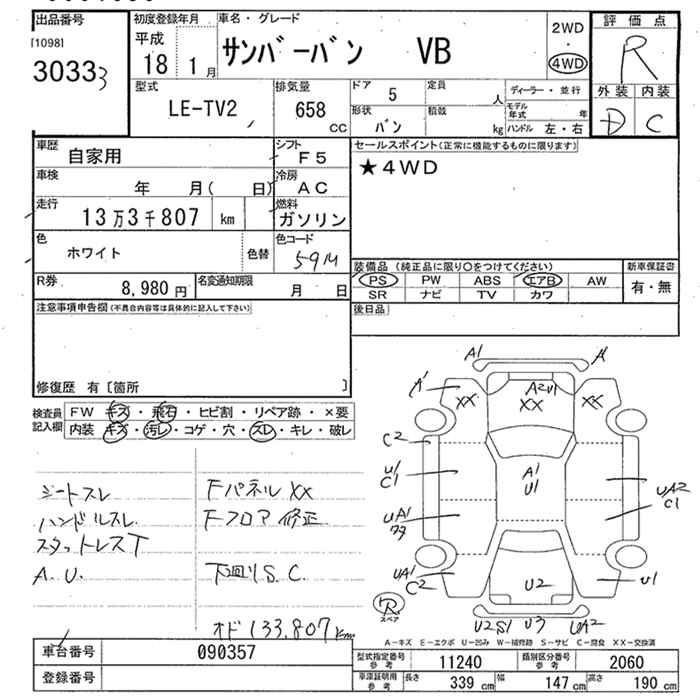 出品番号 初度登録年月 車名・グレード 2WD 評価点
[1098] 平成 サンバーバン VB ・ R
3033 3 18 1月 4WD 外装 内装
型式 排気量 ドア 5 定員 人 ディーラー・並行 D C
LE-TV2 658 cc 形状 バン 積載 kg モデル年式 年
ハンドル 左・右
車歴 自家用 シフト F5 セールスポイント(正常に機能するものに限ります)
車検 年 月( 日) 冷房 AC ★4WD
走行 13万3千807 km 燃料 ガソリン
色 ホワイト 色替 色コード 59M
R券 8,980円 名変通知期限 月 日
装備品(純正品に限り○をつけてください) 新車保証書
PS PW ABS エアB AW 有・無
SR ナビ TV カワ
注意事項申告欄(不具合内容等は具体的に記入して下さい) 後日品
修復歴 有〔箇所 〕
検査員記入欄 FW キズ・飛石・ヒビ割・リペア跡・×要
内装 キズ・汚レ・コゲ・穴・スレ・キレ・破レ
シートスレ Fパネル XX
ハンドルスレ Fフロア 修正
スタットレスT
A.U. 下回りS.C.
オド 133.807km
A1 A1
A1 XX A2U1 XX XX
C2
U1 C1 A1 U1 UA2 C1
UA1
UA1 C2 U2 U1
R スペア
U2S1 U3 UA2
A-キズ E-エクボ U-凹み W-補修跡 S-サビ C-腐食 XX-交換済
車台番号 090357 型式指定番号 参考 11240 類別区分番号 参考 2060
登録番号 車庫証明用 参考 長さ 339cm 幅 147cm 高さ 190cm